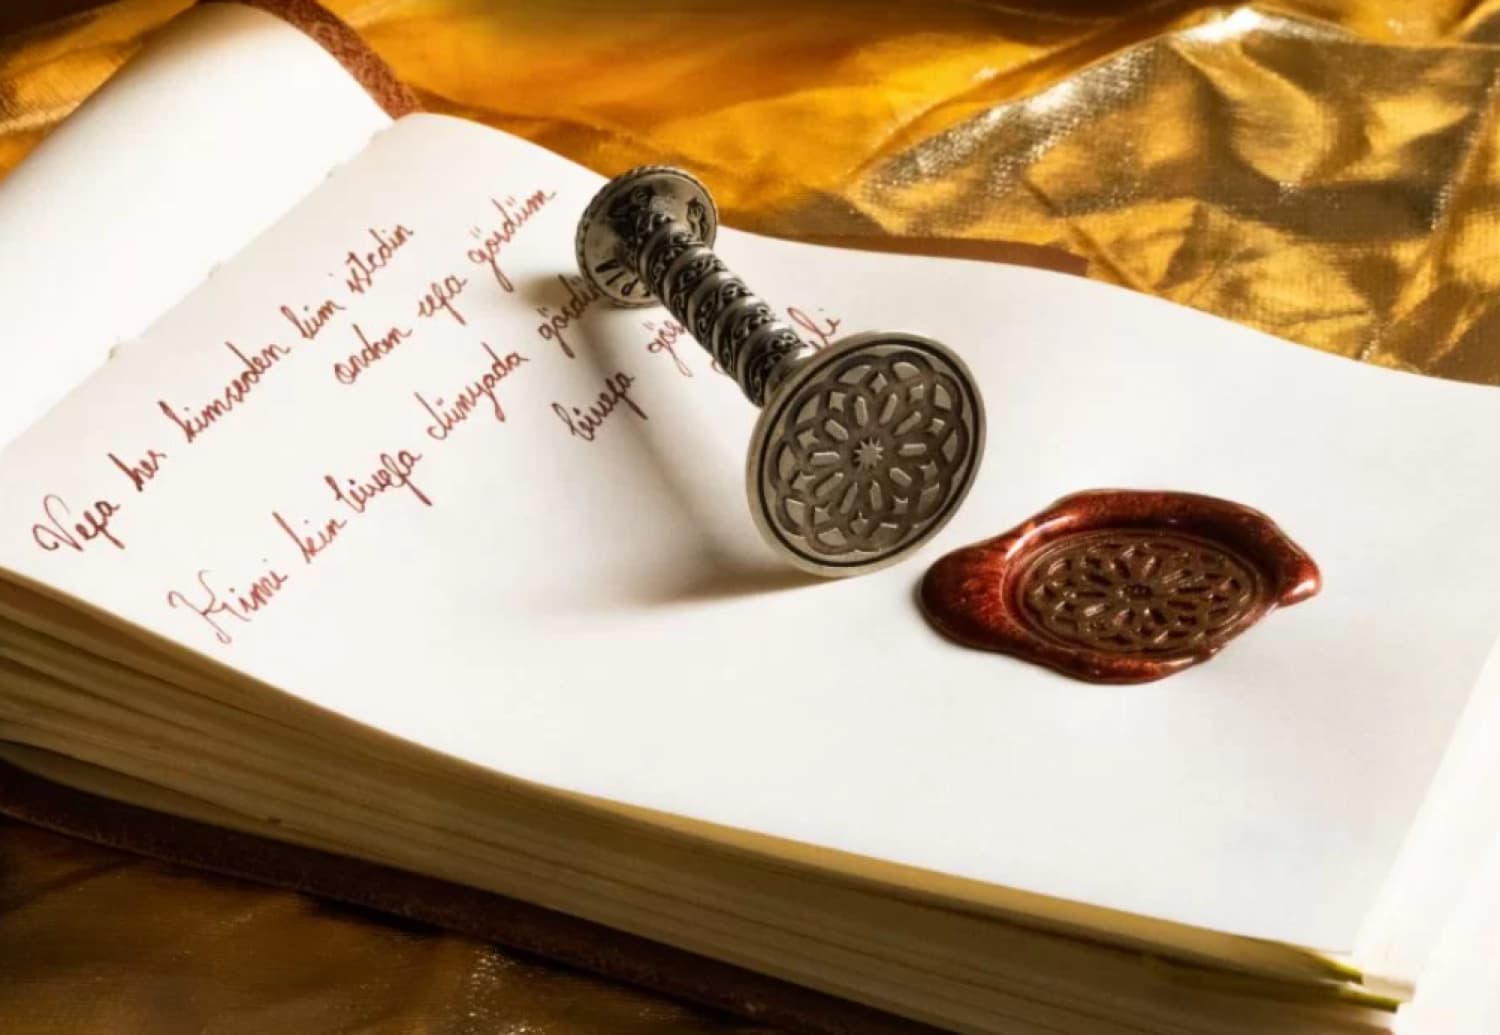 Vefa her kimseden kim istedin
andan cefa gördüm
Kimi kim bivefa dünyada gördü
bivefa